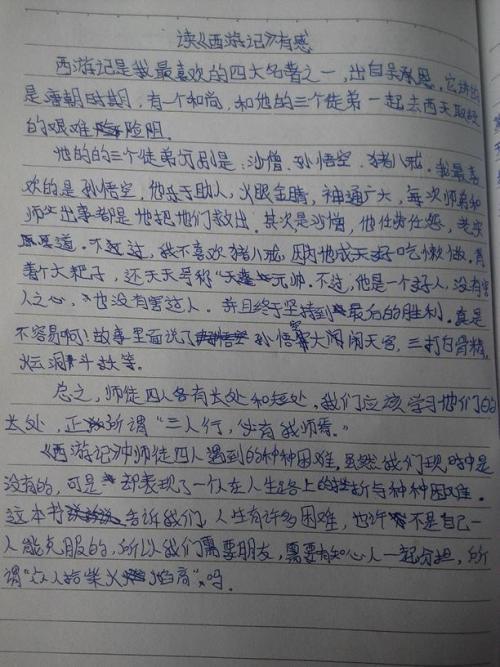 读《西游记》有感
西游记是我最喜欢的四大名著之一，出自吴承恩，它讲的
是唐朝时期，有一个和尚，和他的三个徒弟一起去西天取经
的艰难险阻。
他的的三个徒弟分别是：沙僧、孙悟空、猪八戒。我最喜
欢的是孙悟空，他乐于助人，火眼金睛，神通广大，每次师弟和
师父出事都是他把他们救出。其次是沙僧，他任劳任怨，老实
厚道。不过，我不喜欢猪八戒，因为他成天好吃懒做。
着个大耙子，还天天号称"天蓬元帅。不过，他是一个好人，没有害
人之心，也没有害过人。并且终于坚持到最后的胜利。真是
不容易啊！故事里面说了孙悟空大闹闹天宫，三打白骨精，
火云洞斗妖等。
总之，师徒四人各有长处和短处，我们应该学习他们的
长处，正所谓"三人行，必有我师焉。"
《西游记》中师徒四人遇到的种种困难，虽然我们现时中是
没有的，可是却表现了一个人在人生路上的挫折与种种困难。
这本书告诉我们，人生有许多困难，也许不是自己一
人能克服的，所以我们需要朋友，需要有知心人一起分担，所
谓"众人拾柴火焰高"，吗。